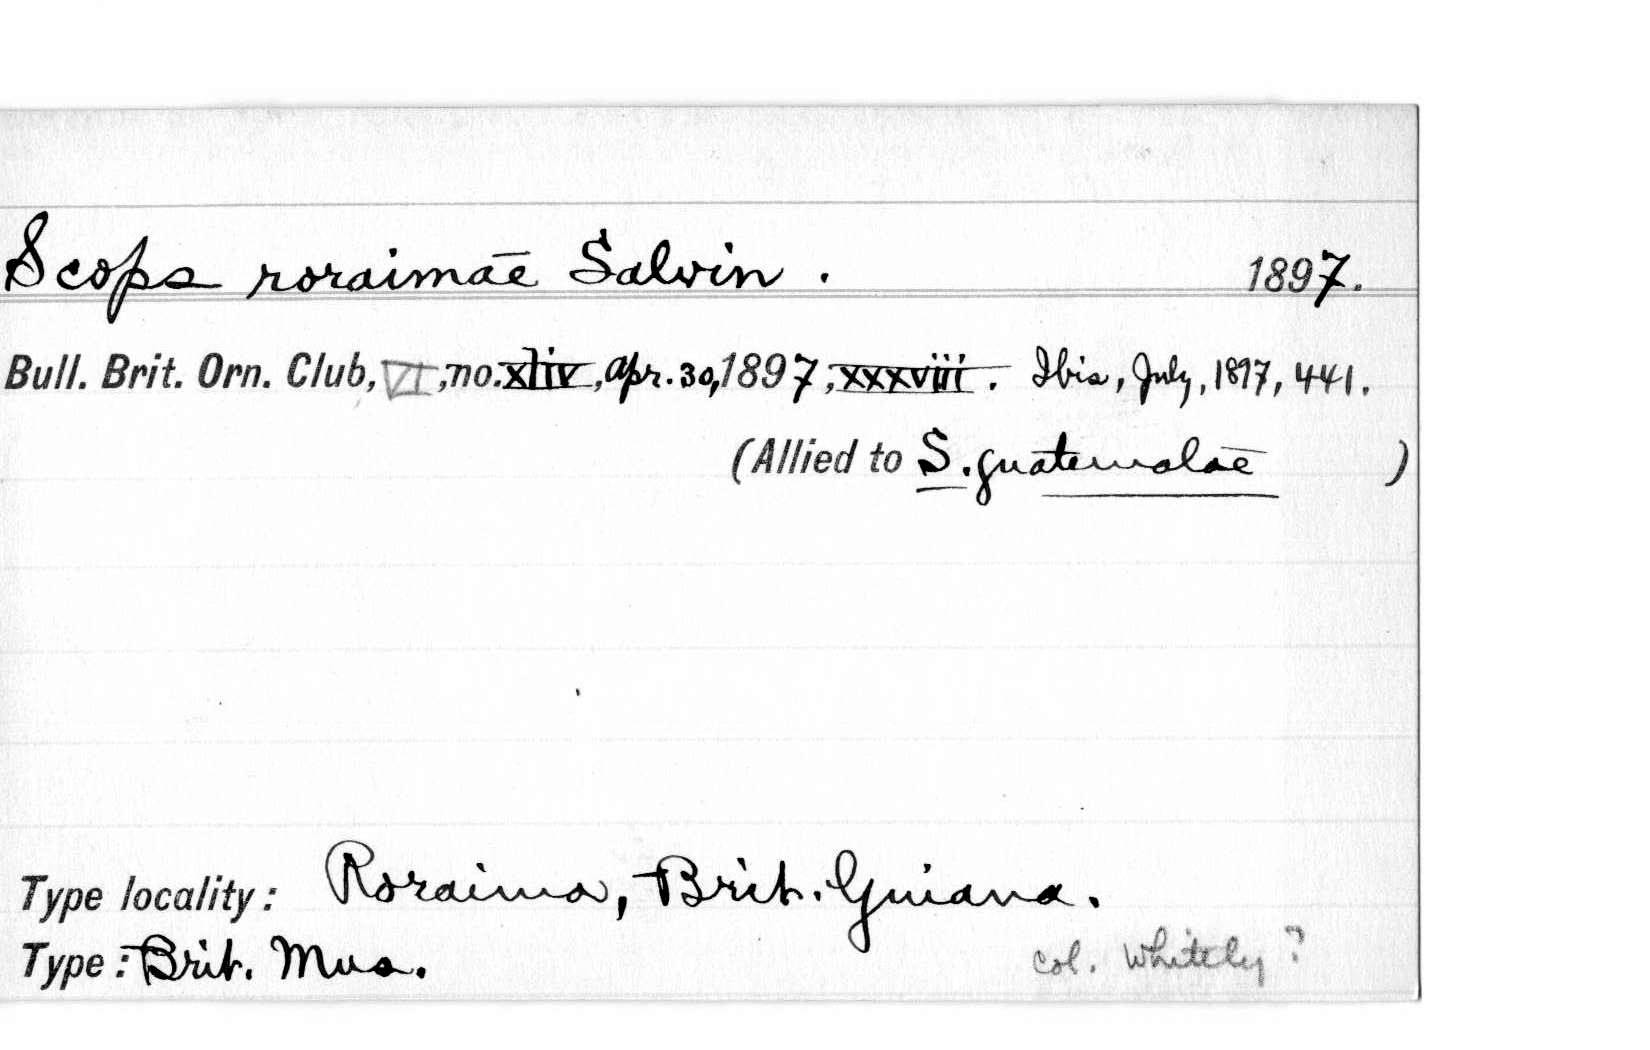 Scops roraimae Salvin. 1897.
Bull. Brit. Orn. Club, VI, no. xliv, Apr. 30, 1897, xxxviii. Ibis, July, 1897, 441.
(Allied to S. guatemalae )
Type locality: Roraima, Brit. Guiana.
Type: Brit. Mus. col. Whitely ?